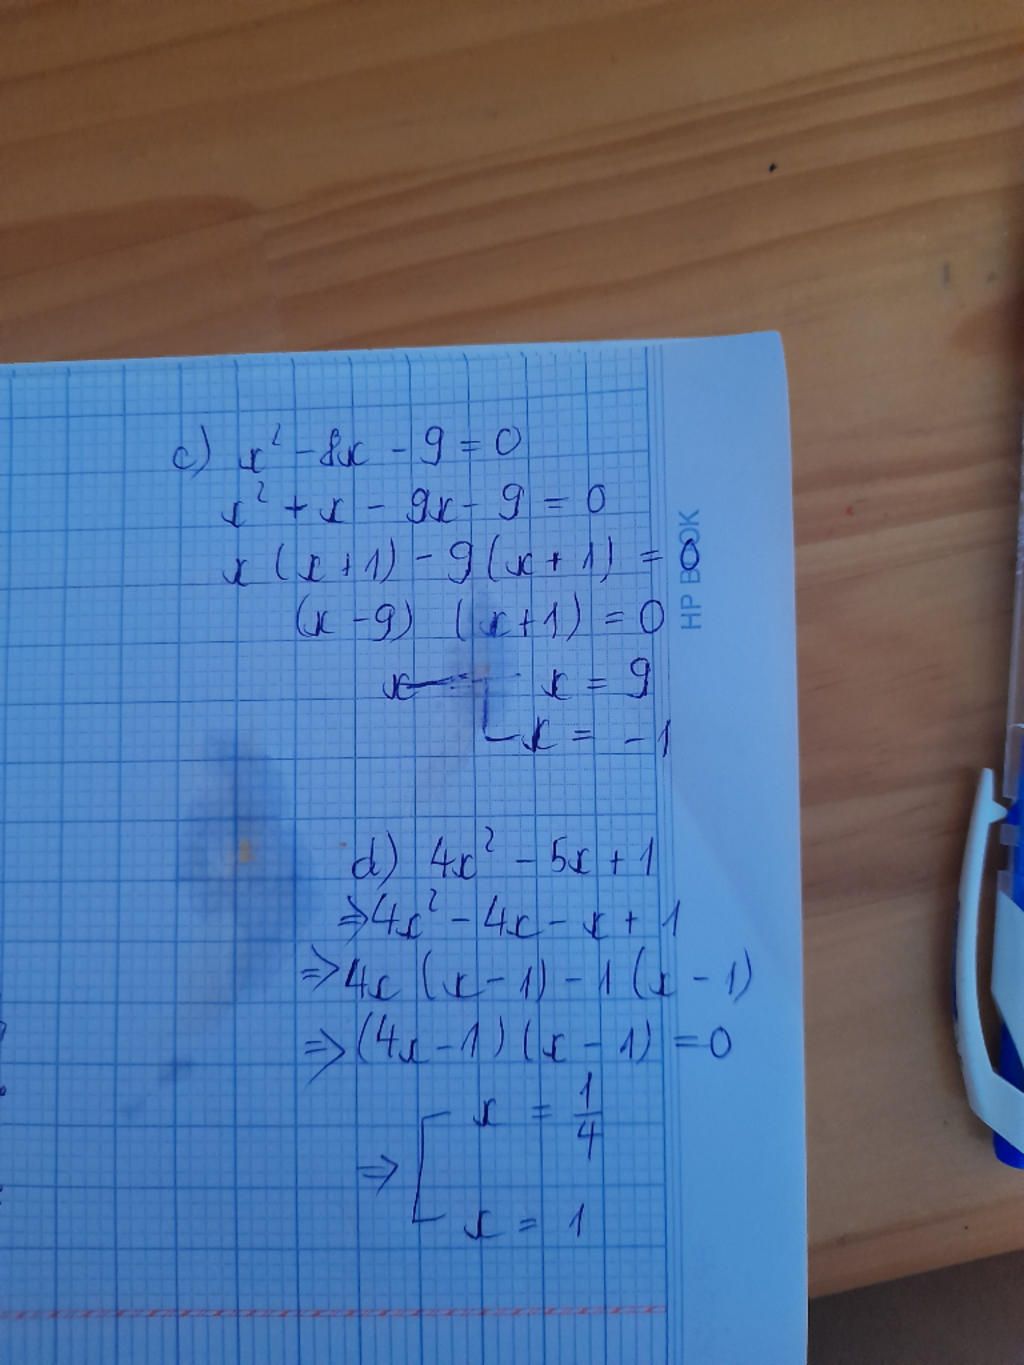 c) x² - 8x - 9 = 0
x² + x - 9x - 9 = 0
x (x + 1) - 9 (x + 1) = 0
(x - 9) (x + 1) = 0
x = 9
x = -1
d) 4x² - 5x + 1
⇒ 4x² - 4x - x + 1
⇒ 4x (x - 1) - 1 (x - 1)
⇒ (4x - 1) (x - 1) = 0
x = 1/4
⇒
x = 1
HP BOOK